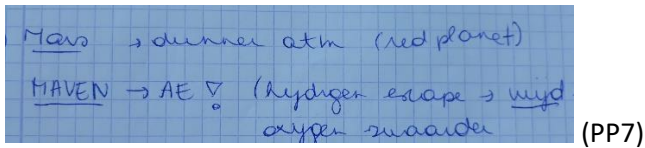 Mars → dunner atm (red planet)
MAVEN → AE ∇! (hydrogen escape → wijd
oxygen zwaarder (PP7)